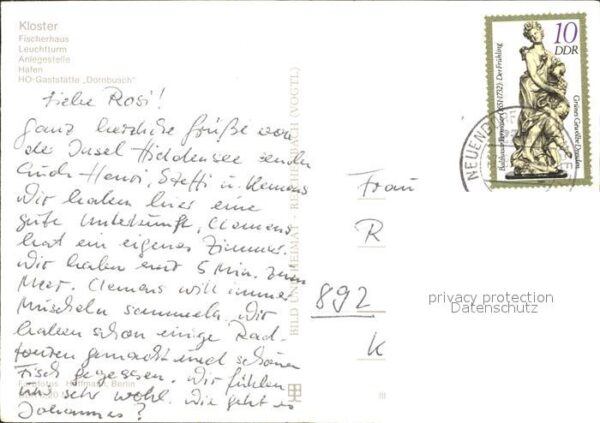 Kloster
Fischerhaus
Leuchtturm
Anlegestelle
Hafen
HO-Gaststätte „Dornbusch"
Liebe Rosi!
Ganz herzliche Grüße von
der Insel Hiddensee senden
Euch Henri, Steffi u. Klemens
Wir haben hier eine
gute Unterkunft, Clemens
hat ein eigenes Zimmer.
Wir haben nur 5 Min. zum
Meer. Clemens will immer
Muscheln sammeln. Wir
haben schon einige Rad-
touren gemacht und schönen
Fisch gegessen. Wir fühlen
uns sehr wohl. Wie geht es
Johannes?
Hoffmann, Berlin
BILD UND HEIMAT · REICHENBACH (VOGTL)
10
DDR
Balthasar Permoser (1651-1732): Der Frühling
Grünes Gewölbe Dresden
NEUENDORF
Frau
R
892
K
privacy protection
Datenschutz